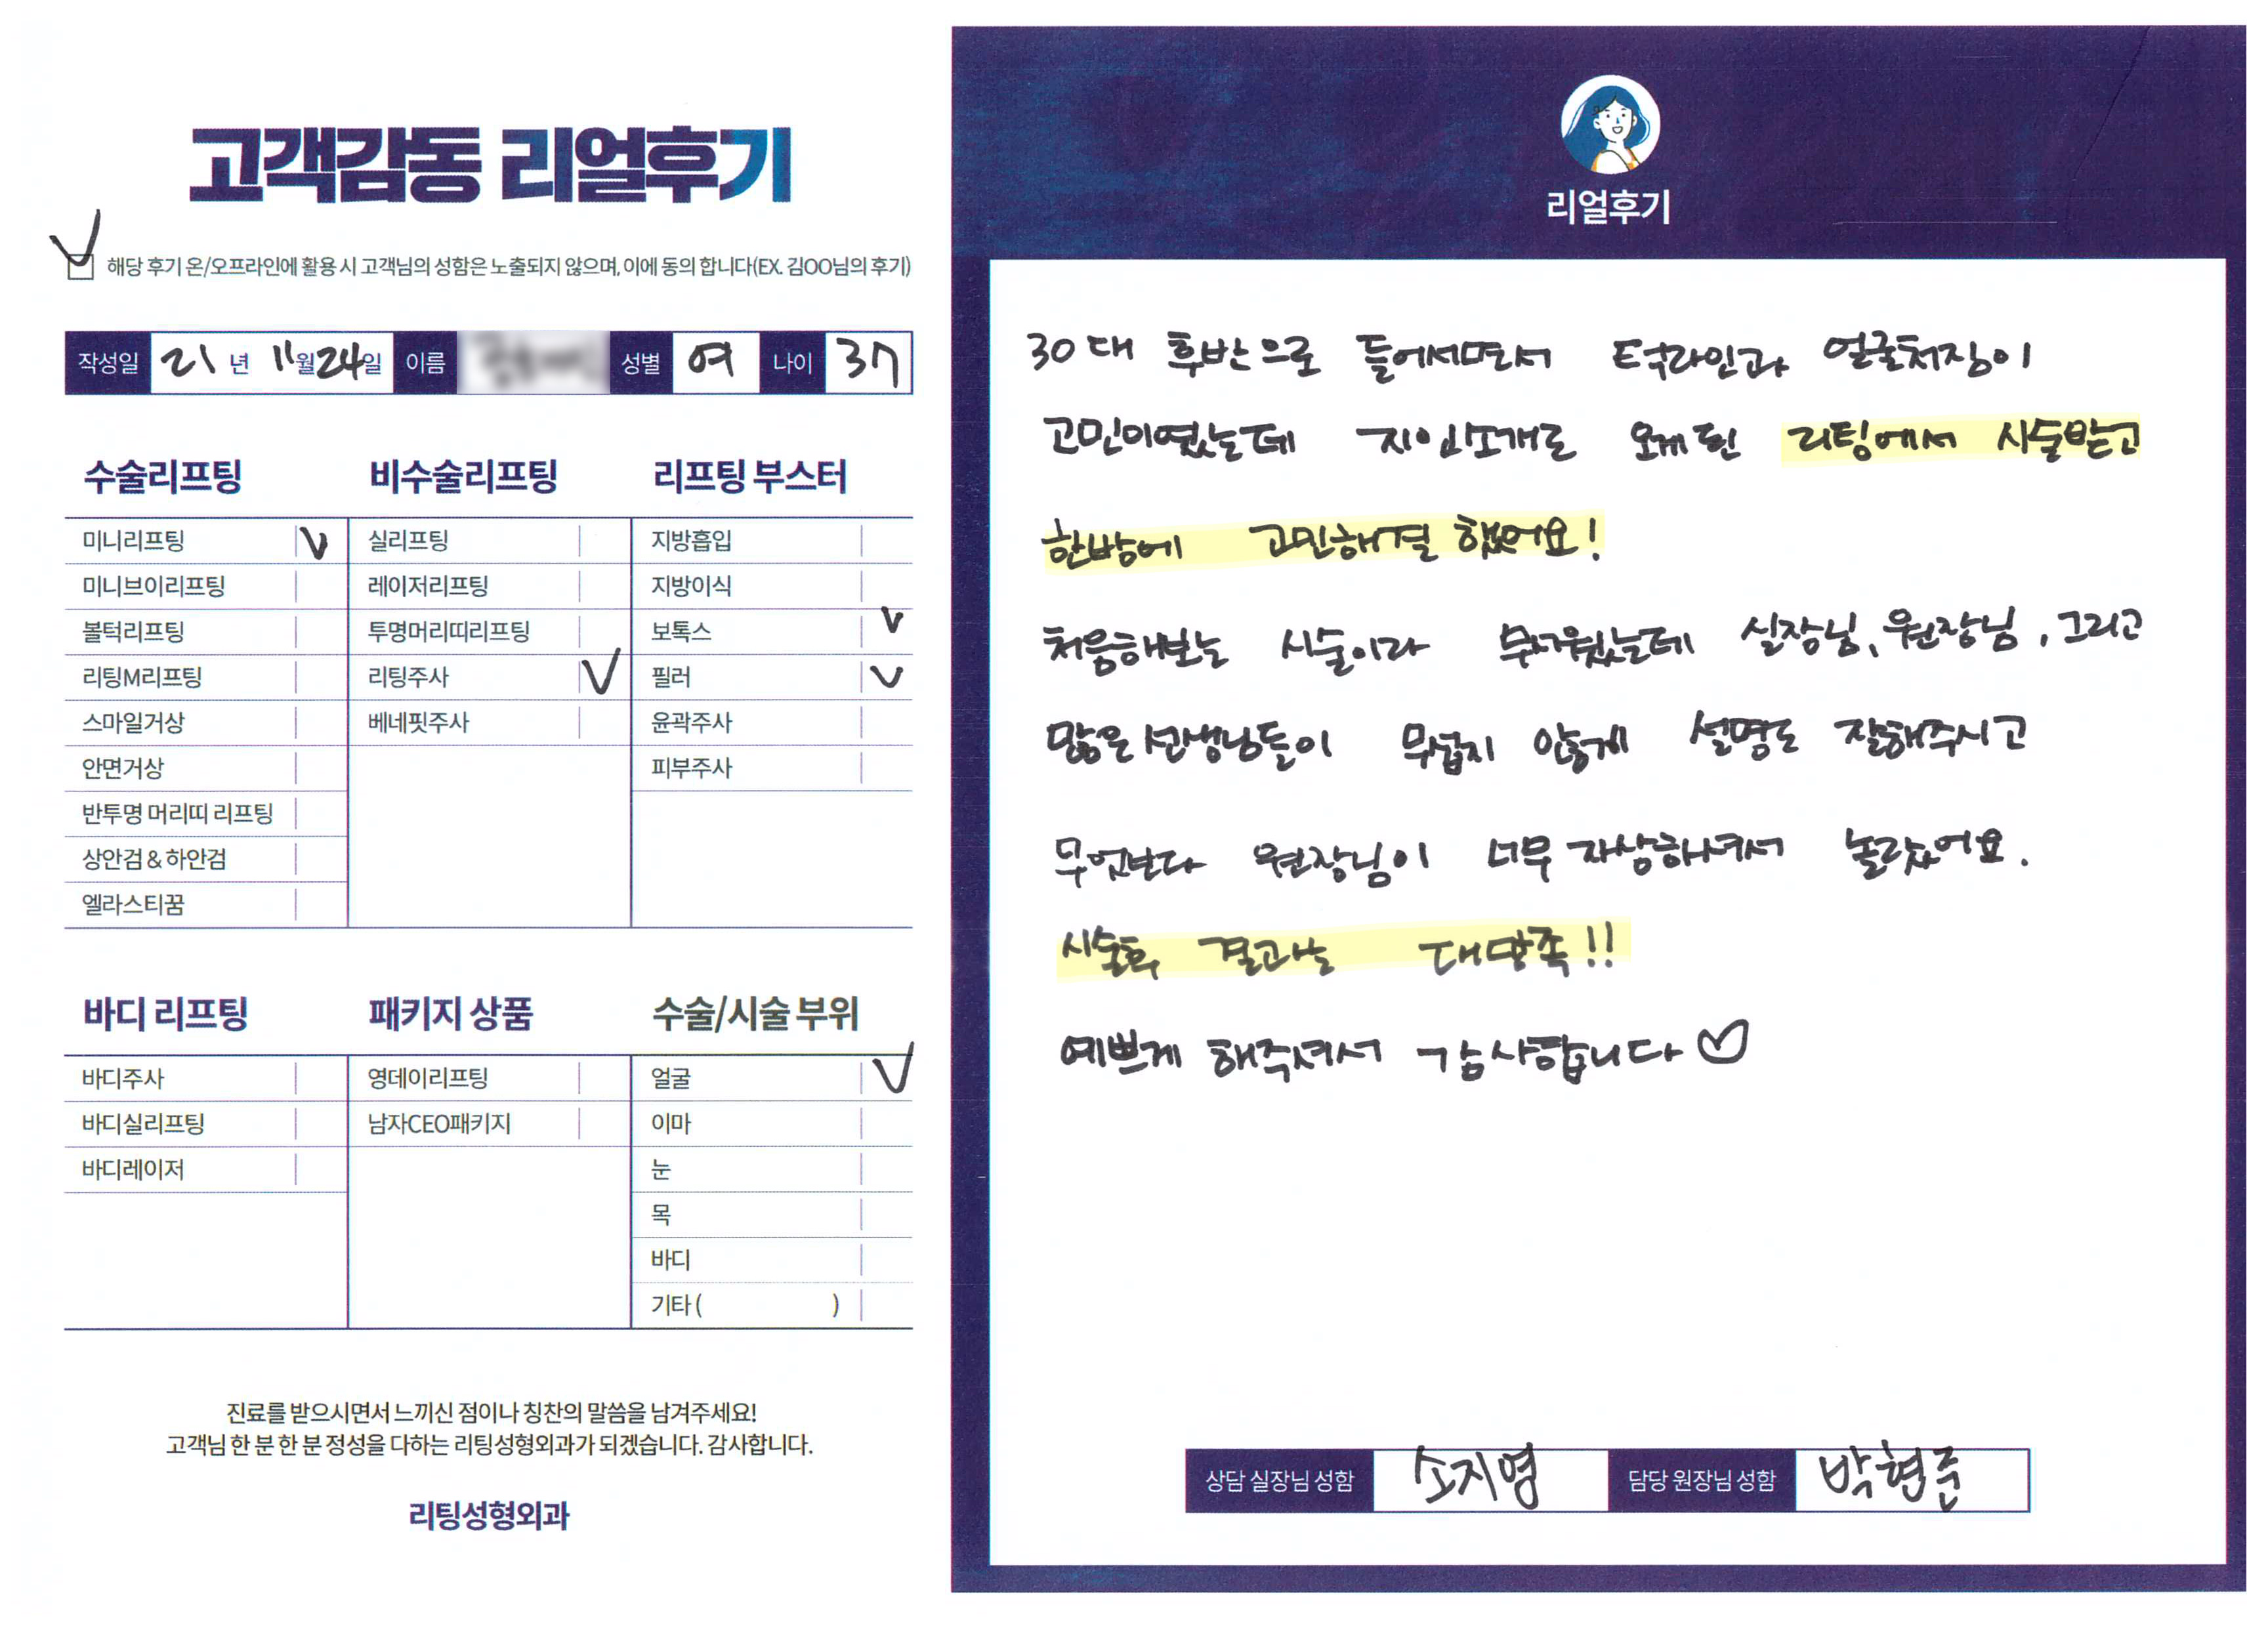 고객감동 리얼후기
해당 후기 온/오프라인에 활용 시 고객님의 성함은 노출되지 않으며, 이에 동의 합니다(EX. 김OO님의 후기)
작성일 21 년 11월 24일 이름 성별 여 나이 37
수술리프팅
미니리프팅 V
미니브이리프팅
볼턱리프팅
리팅M리프팅
스마일거상
안면거상
반투명 머리띠 리프팅
상안검 & 하안검
엘라스티꿈
비수술리프팅
실리프팅
레이저리프팅
투명머리띠리프팅
리팅주사 V
베네핏주사
리프팅 부스터
지방흡입
지방이식
보톡스 V
필러 V
윤곽주사
피부주사
바디 리프팅
바디주사
바디실리프팅
바디레이저
패키지 상품
영데이리프팅
남자CEO패키지
수술/시술 부위
얼굴 V
이마
눈
목
바디
기타 ( )
진료를 받으시면서 느끼신 점이나 칭찬의 말씀을 남겨주세요!
고객님 한 분 한 분 정성을 다하는 리팅성형외과가 되겠습니다. 감사합니다.
리팅성형외과
리얼후기
30대 후반으로 들어서면서 턱라인과 얼굴처짐이
고민이였는데 지인소개로 오게된 리팅에서 시술받고
한방에 고민해결 했어요!
처음해보는 시술이라 무서웠는데 실장님, 원장님, 그리고
많은선생님들이 무섭지 않게 설명도 잘해주시고
무엇보다 원장님이 너무 자상하셔서 놀랐어요.
시술후 결과는 대만족!!
예쁘게 해주셔서 감사합니다♡
상담 실장님 성함 소지영 담당 원장님 성함 박현준